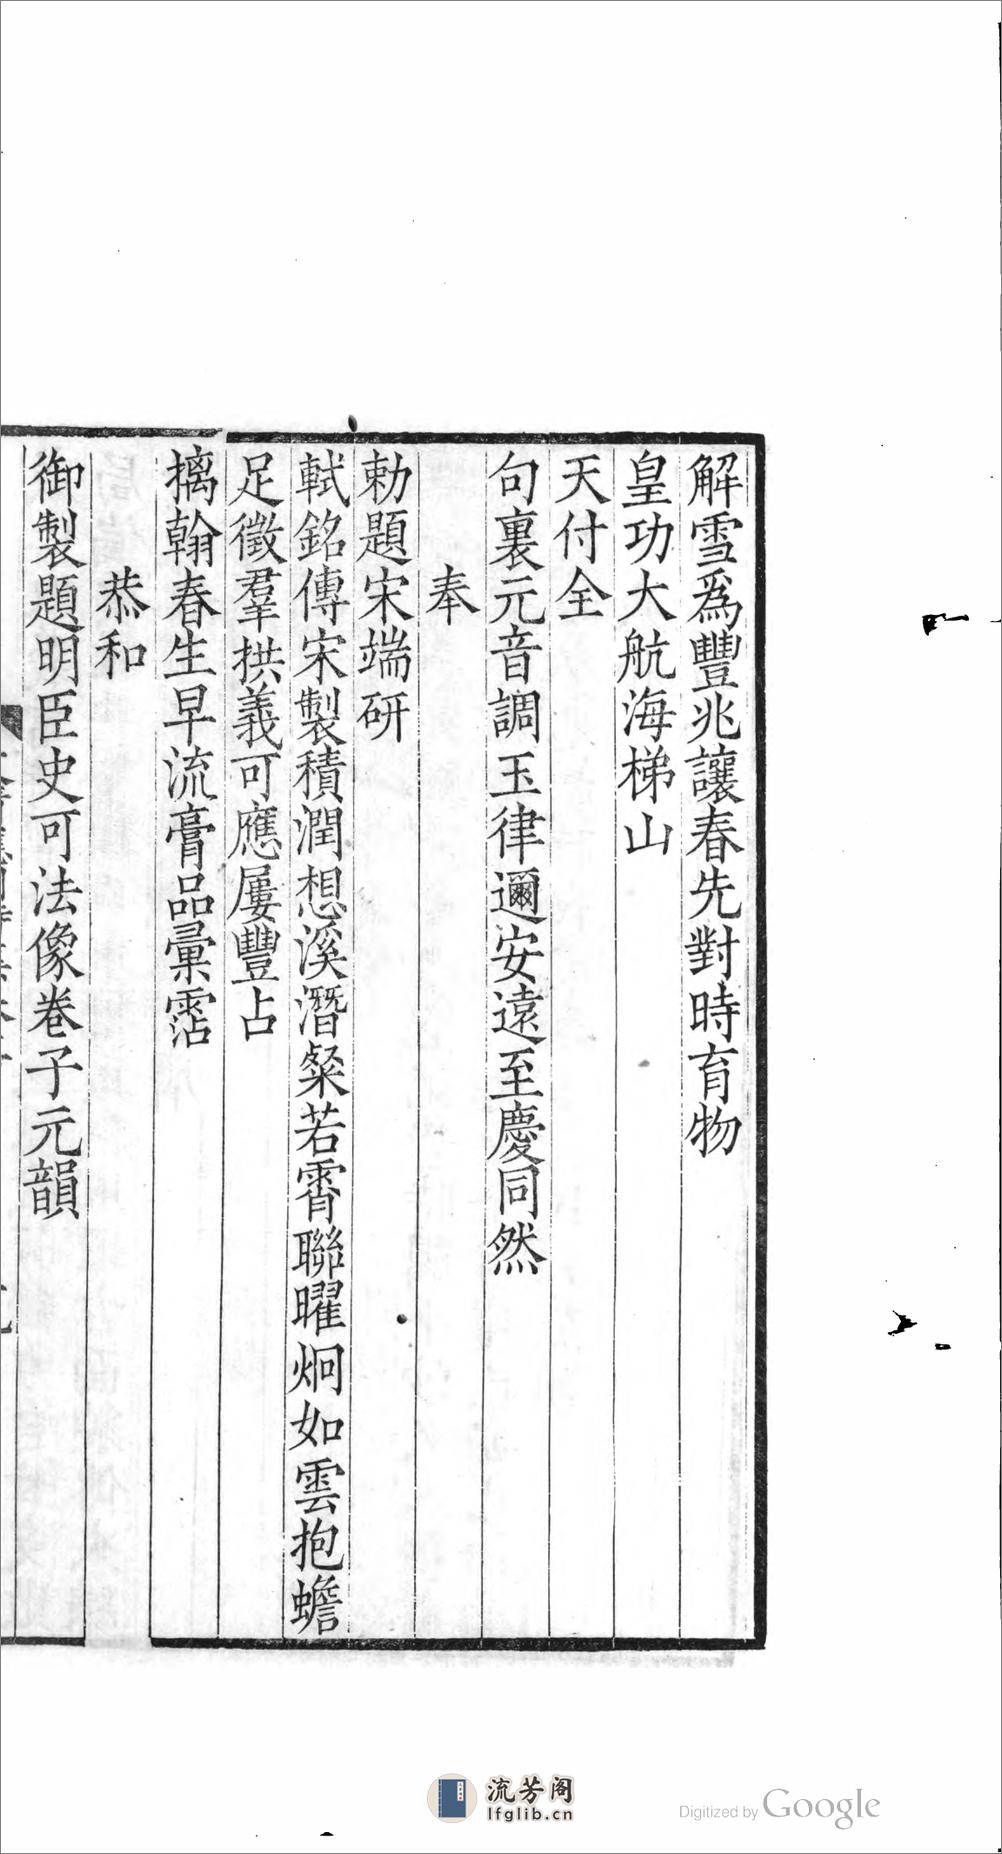 解雪爲豐兆讓春先對時育物
皇功大航海梯山
天付全
句裏元音調玉律邇安遠至慶同然
奉
勅題宋端研
軾銘傳宋製積潤想溪潛粲若霄聯曜炯如雲抱蟾
足徵羣拱義可應屢豐占
摛翰春生早流膏品彙霑
恭和
御製題明臣史可法像卷子元韻
流芳阁
lfglib.cn
Digitized by Google